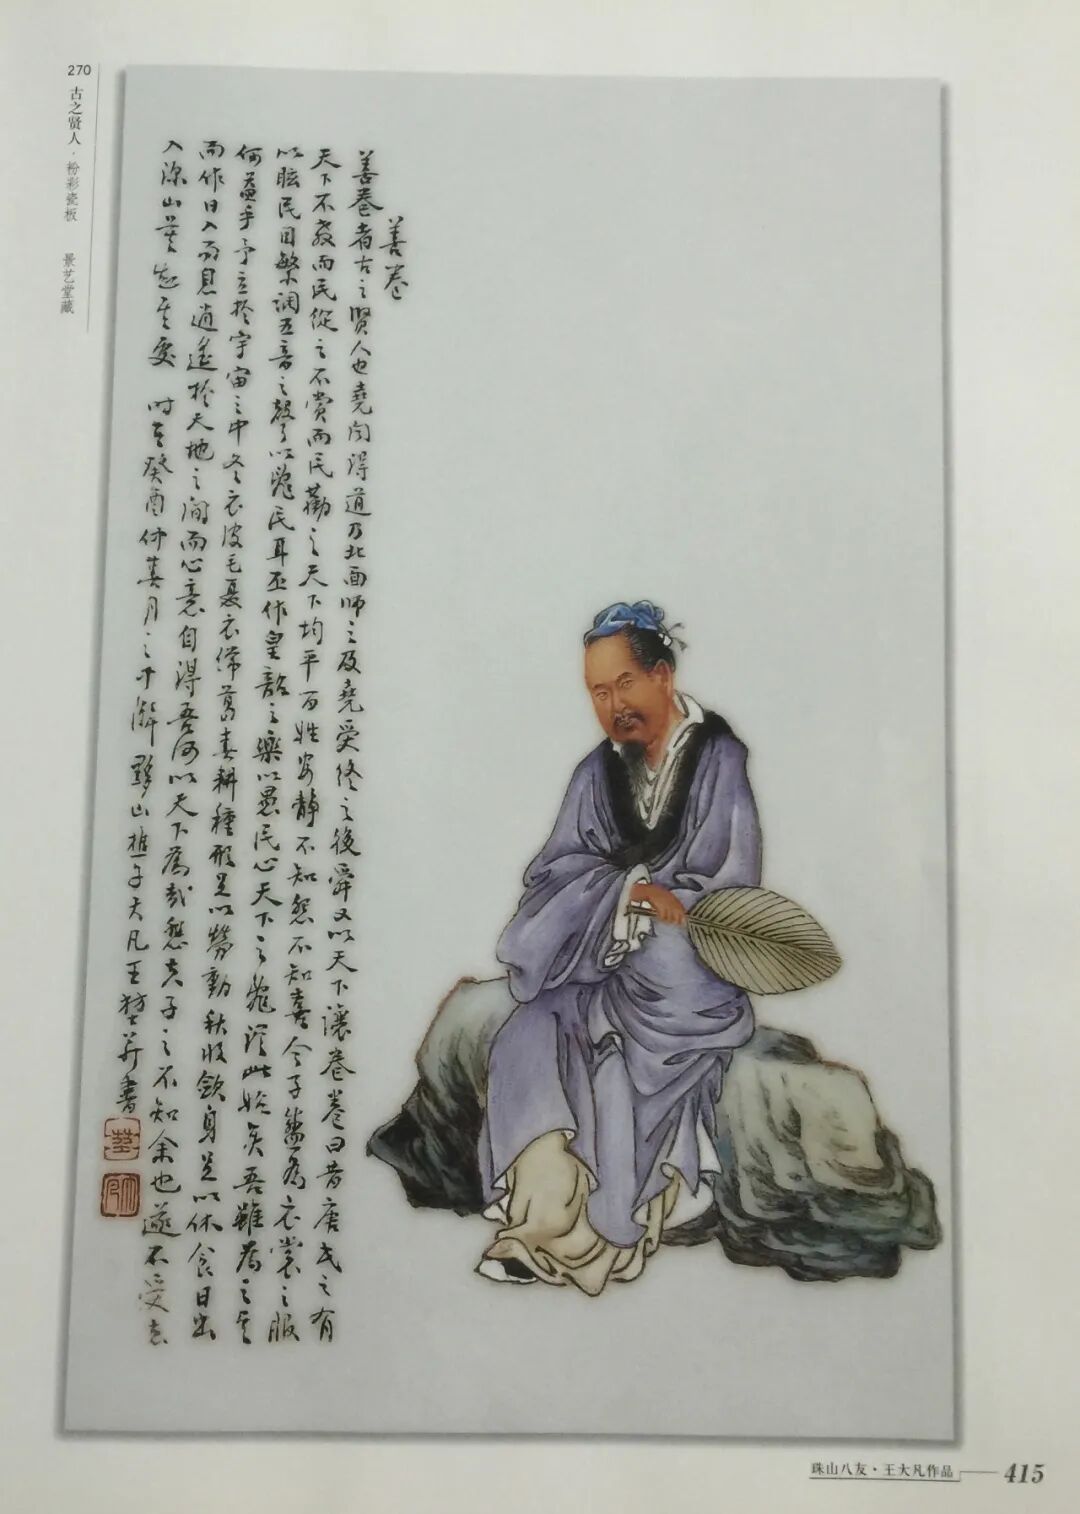 270 古之贤人·粉彩瓷板 景艺堂藏
善卷
善卷者古之賢人也堯聞得道乃北面師之及堯受終之後舜又以天下讓卷卷曰昔唐氏之有
天下不教而民從之不賞而民勸之天下均平百姓安靜不知怨不知喜今子盛為衣裳之服
以眩民目繁調五音之聲以亂民耳丕作皇韶之樂以愚民心天下之亂從此始矣吾雖為之其
何益乎予立於宇宙之中冬衣皮毛夏衣絺葛春耕種形足以勞動秋收斂身足以休食日出
而作日入而息逍遙於天地之間而心意自得吾何以天下為哉愁夫子之不知余也遂不受去
入深山莫知其處 時在癸酉仲春月之下澣 黟山樵子大凡王堃并書
珠山八友·王大凡作品 415